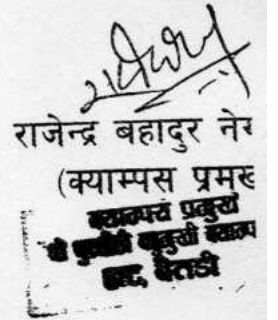 राजेन्द्र बहादुर ने
(क्याम्पस प्रमु
क्याम्पस प्रमुख
श्री बहुमुखी क्याम्प
बैतडी